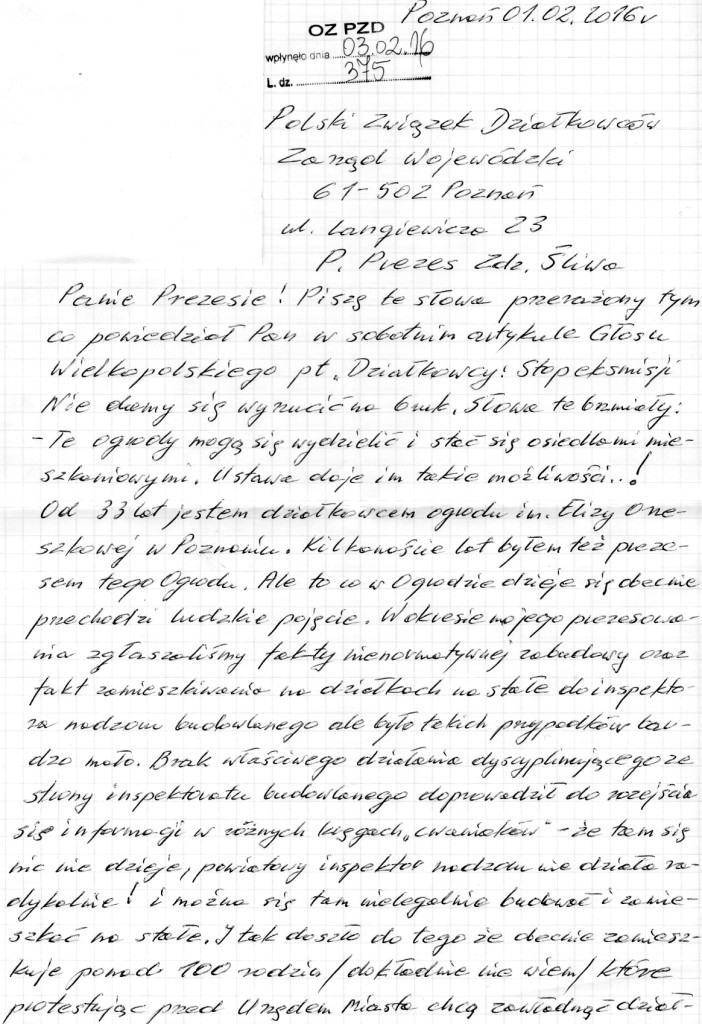 Poznań 01.02.2016r
OZ PZD
wpłynęło dnia 03.02.16
L. dz. 375
Polski Związek Działkowców
Zarząd Wojewódzki
61-502 Poznań
ul. Langiewicza 23
P. Prezes Zdz. Śliwa
Panie Prezesie! Piszę te słowa przerażony tym
co powiedział Pan w sobotnim artykule Głosu
Wielkopolskiego pt „Działkowcy: Stop eksmisji
Nie damy się wyrzucić na bruk. Słowa te brzmiały:
- Te ogrody mogą się wydzielić i stać się osiedlami mie-
szkaniowymi. Ustawa daje im takie możliwości..!
Od 33 lat jestem działkowcem ogrodu im. Elizy Orze-
szkowej w Poznaniu. Kilkanaście lat byłem też preze-
sem tego Ogrodu. Ale to co w Ogrodzie dzieje się obecnie
przechodzi ludzkie pojęcie. W okresie mojego prezesowa-
nia zgłaszaliśmy fakty nienormatywnej zabudowy oraz
fakt zamieszkiwania na działkach na stałe do inspekto-
ra nadzoru budowlanego ale było takich przypadków bar-
dzo mało. Brak właściwego działania dyscyplinującego ze
strony inspektoratu budowlanego doprowadził do rozejścia
się informacji w różnych kręgach „cwaniaków" - że tam się
nic nie dzieje, powiatowy inspektor nadzoru nie działa ra-
dykalnie! i można się tam nielegalnie budować i zamie-
szkać na stałe. I tak doszło do tego że obecnie zamiesz-
kuje ponad 100 rodzin /dokładnie nie wiem/ które
protestując przed Urzędem Miasta chcą zawładnąć dział-